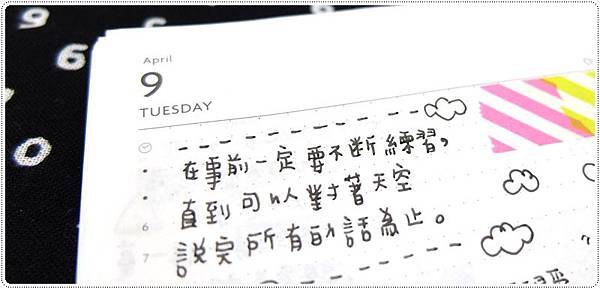 April
9
TUESDAY
在事前一定要不斷練習,
直到可以對著天空
6
說完所有的話為止。
7